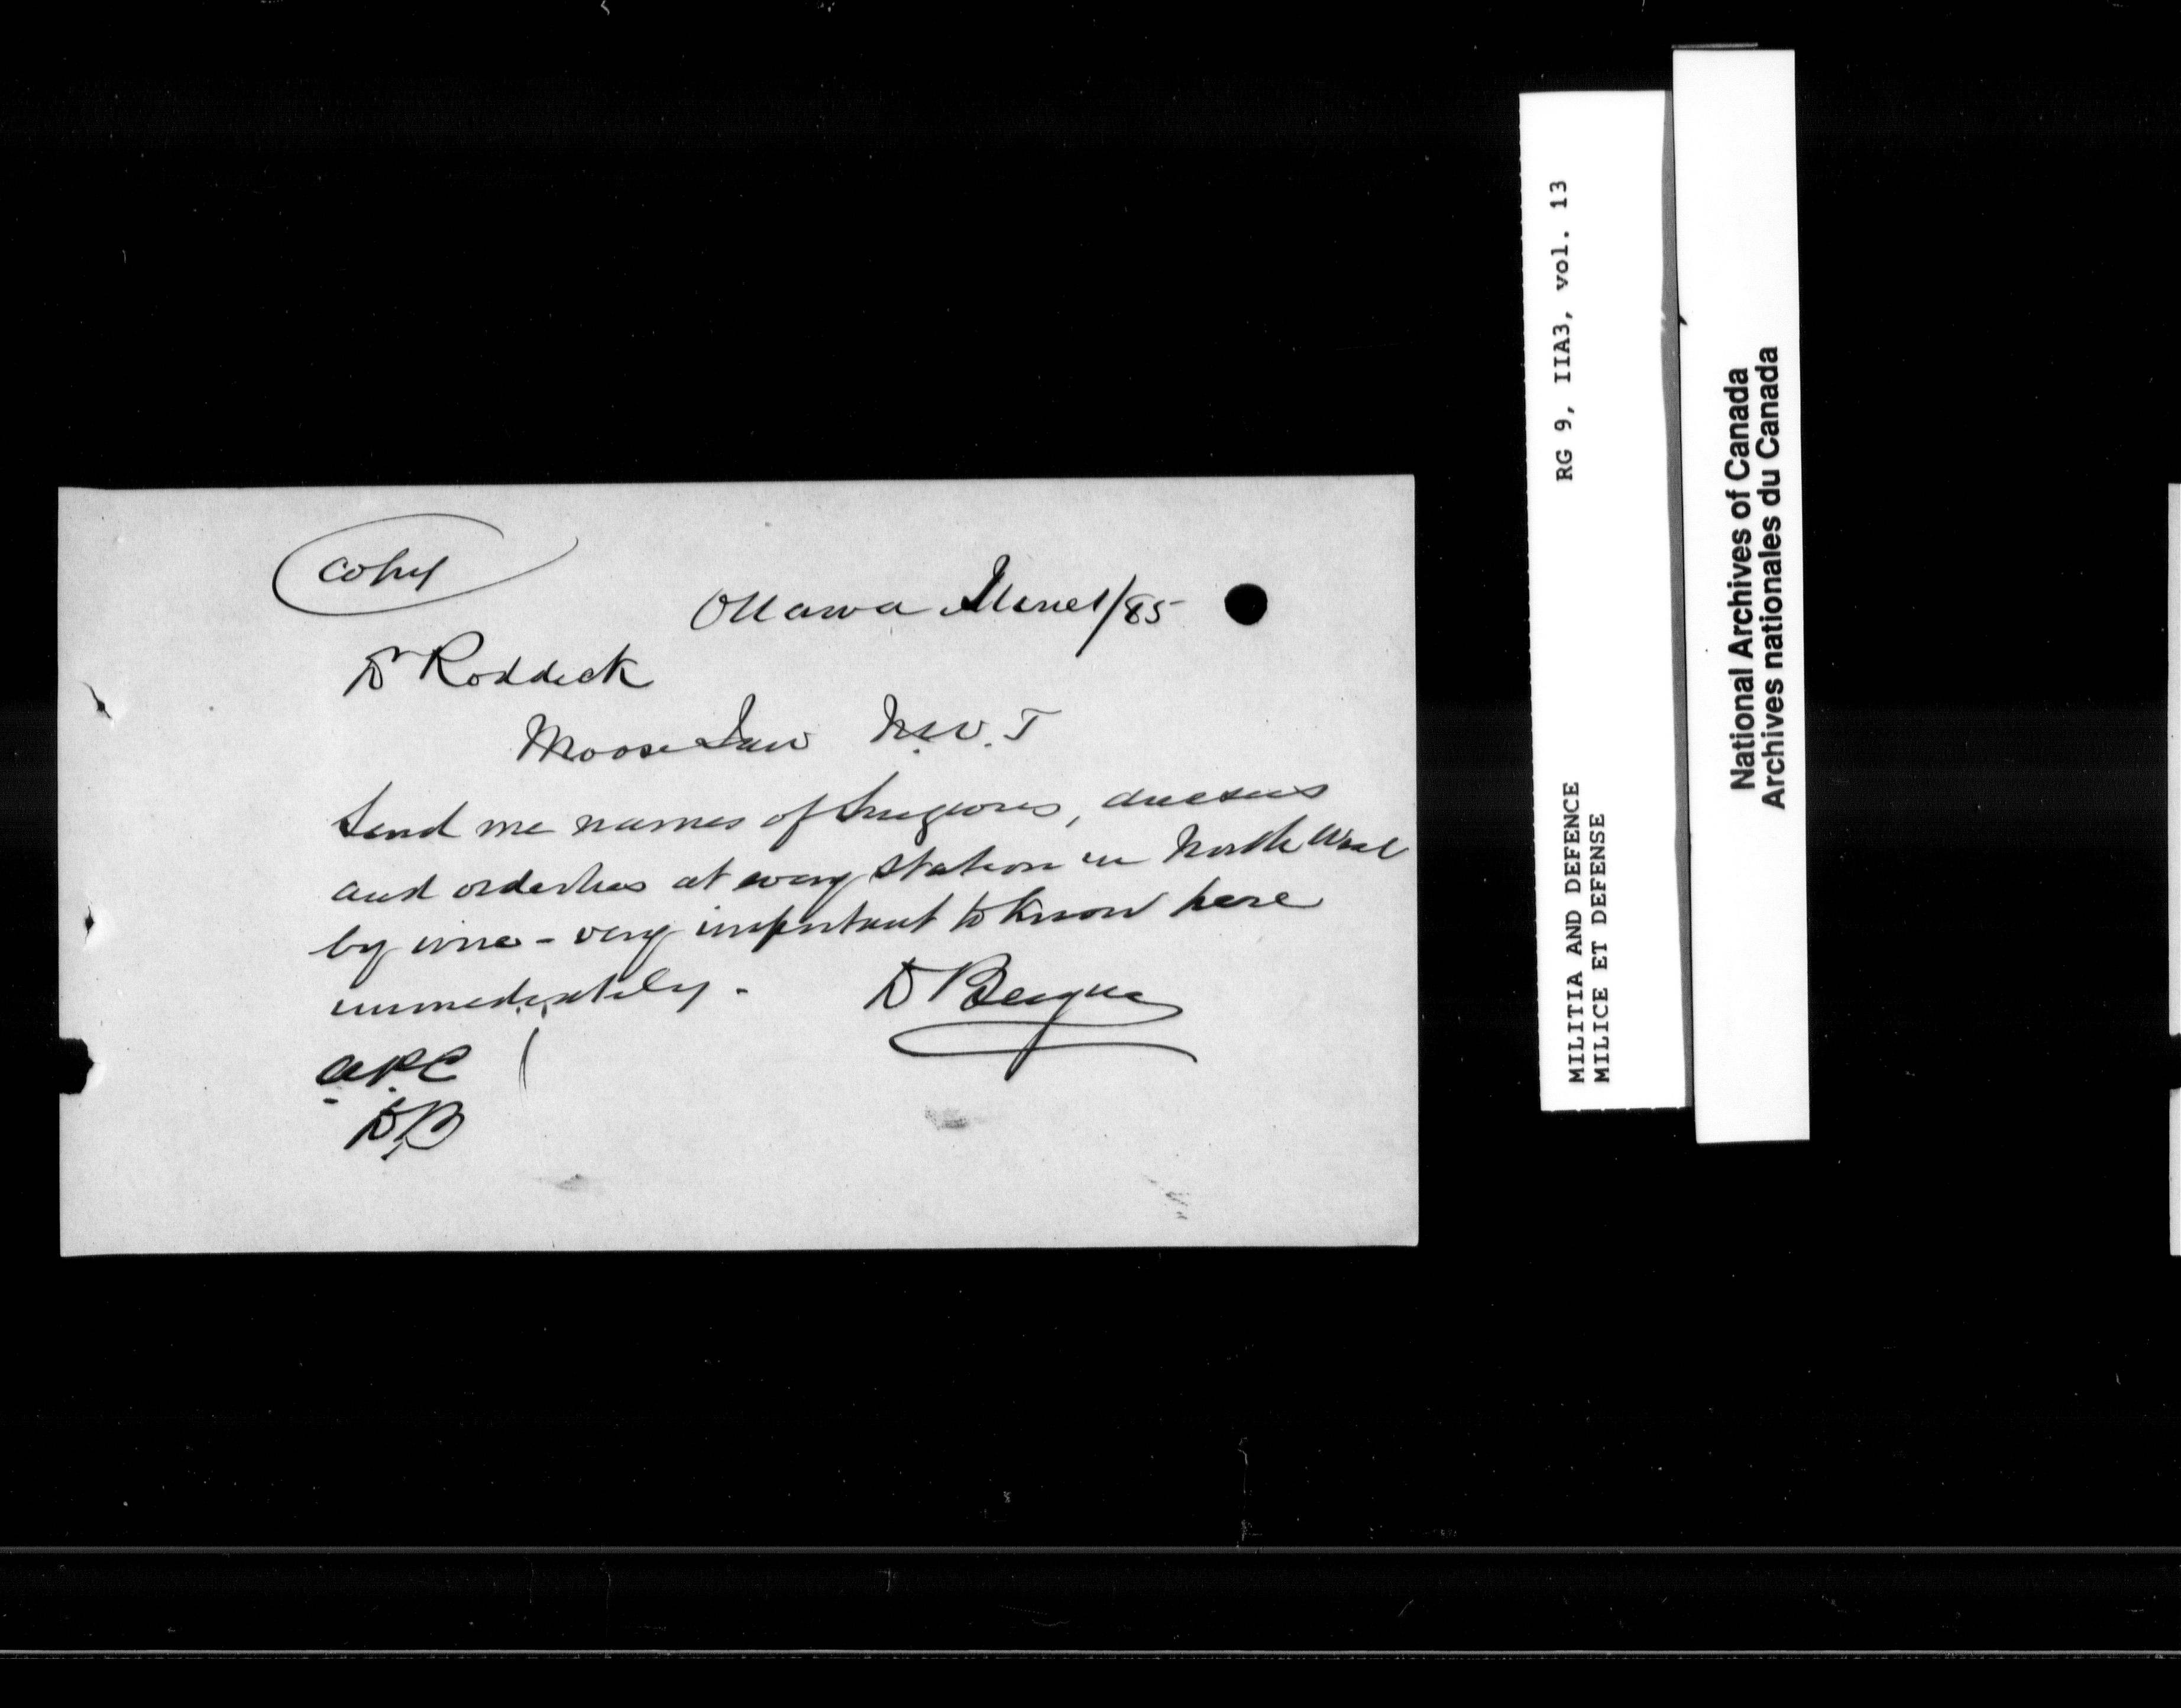 copy
Ottawa June 1/85
Dr Roddick
Moose Jaw N.W.T
Send me names of Surgeons, dressers
and orderlies at every station in North West
by wire - very important to know here
immediately. -
D Bergin
D.B
RG 9, IIA3, vol. 13
MILITIA AND DEFENCE
MILICE ET DEFENSE
National Archives of Canada
Archives nationales du Canada